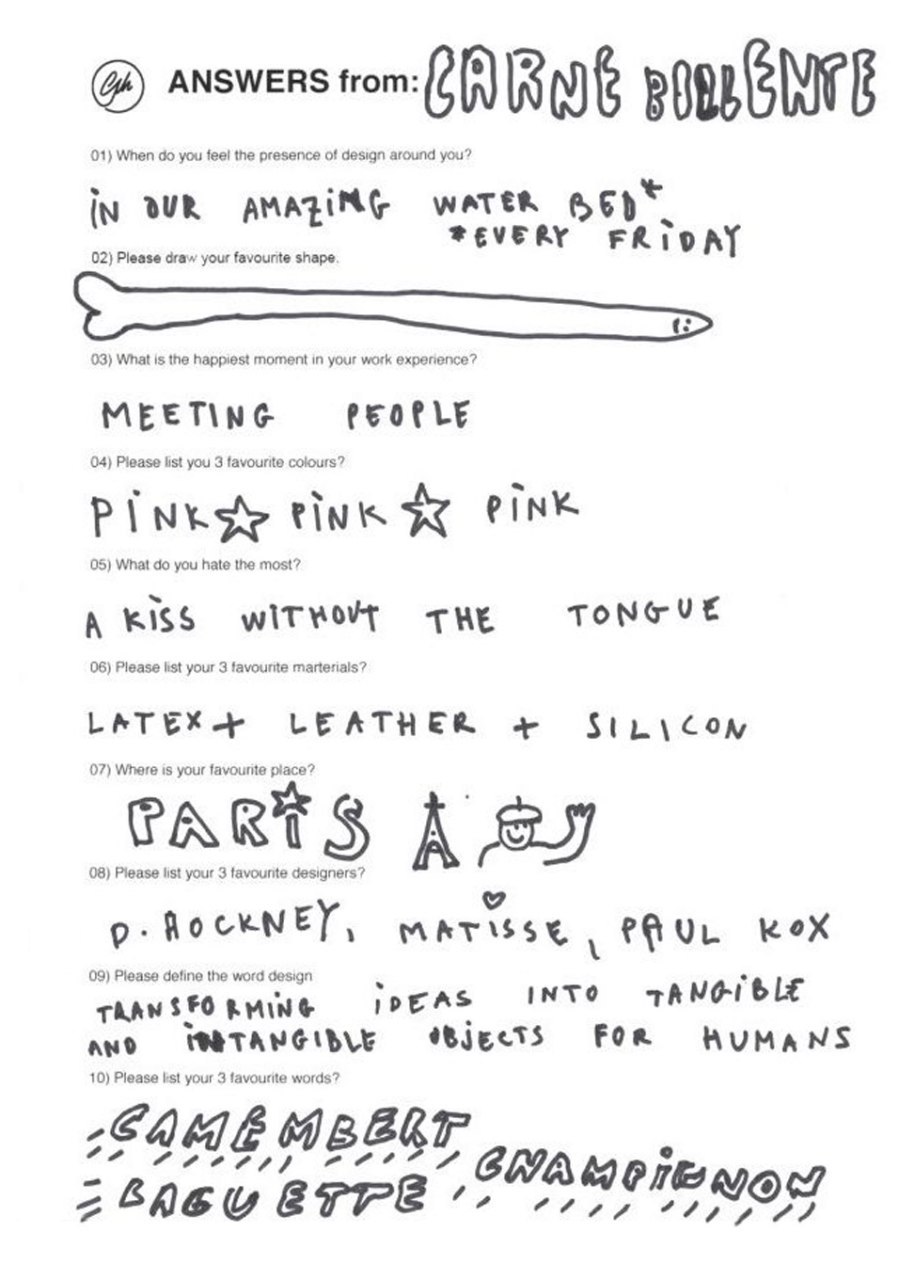 Gph ANSWERS from: CARNE BOLLENTE
01) When do you feel the presence of design around you?
iN OUR AMAZiNG WATER BED*
*EVERY FRiDAY
02) Please draw your favourite shape.
03) What is the happiest moment in your work experience?
MEETING PEOPLE
04) Please list you 3 favourite colours?
PiNK ☆ PiNK ☆ PiNK
05) What do you hate the most?
A KiSS WiTHOUT THE TONGUE
06) Please list your 3 favourite marterials?
LATEX + LEATHER + SILICON
07) Where is your favourite place?
PARiS
08) Please list your 3 favourite designers?
D. HOCKNEY, MATiSSE, PAUL KOX
09) Please define the word design
TRANSFORMING iDEAS INTO TANGiBLE
AND iNTANGIBLE OBJECTS FOR HUMANS
10) Please list your 3 favourite words?
CAMEMBERT
BAGUETTE, CHAMPiGNON